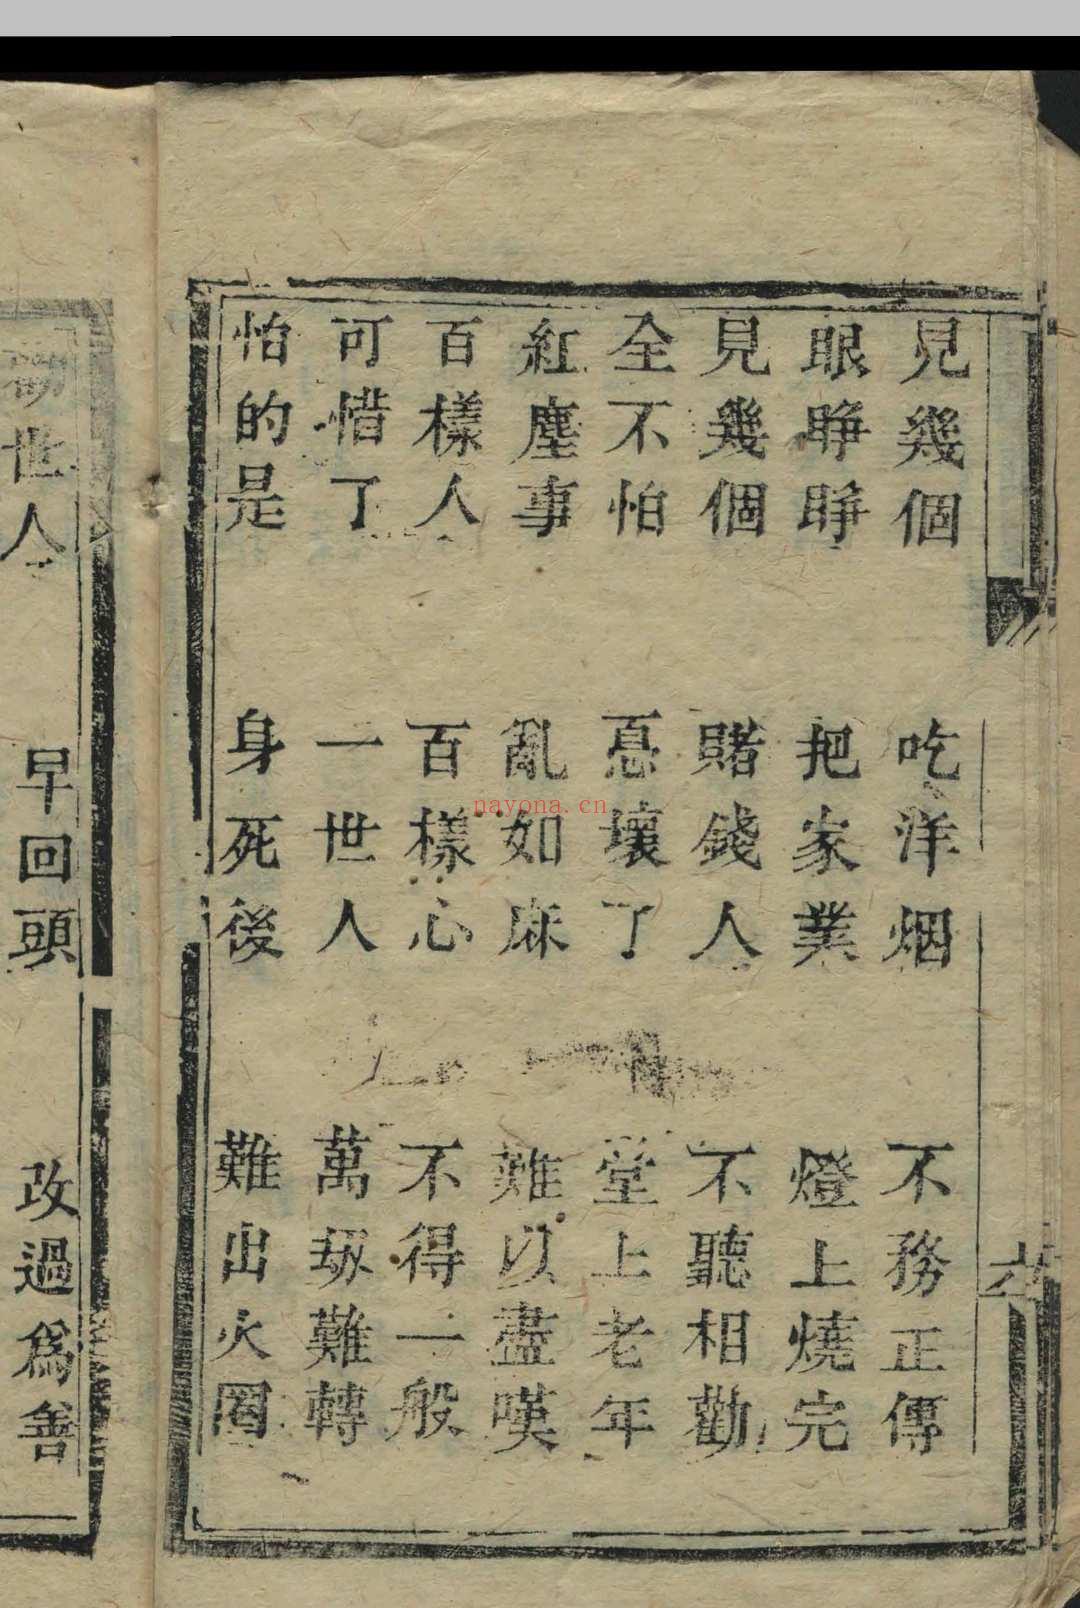 見幾個 吃洋烟 不務正傳
眼睁睁 把家業 燈上燒完
見幾個 賭錢人 不聽相勸
全不怕 惪壞了 堂上老年
紅塵事 亂如麻 難以盡嘆
百樣人 百樣心 不得一般
可惜了 一世人 萬刼難轉
怕的是 身死後 難出火圈
勸世人 早回頭 改過爲善
六
nayona.cn